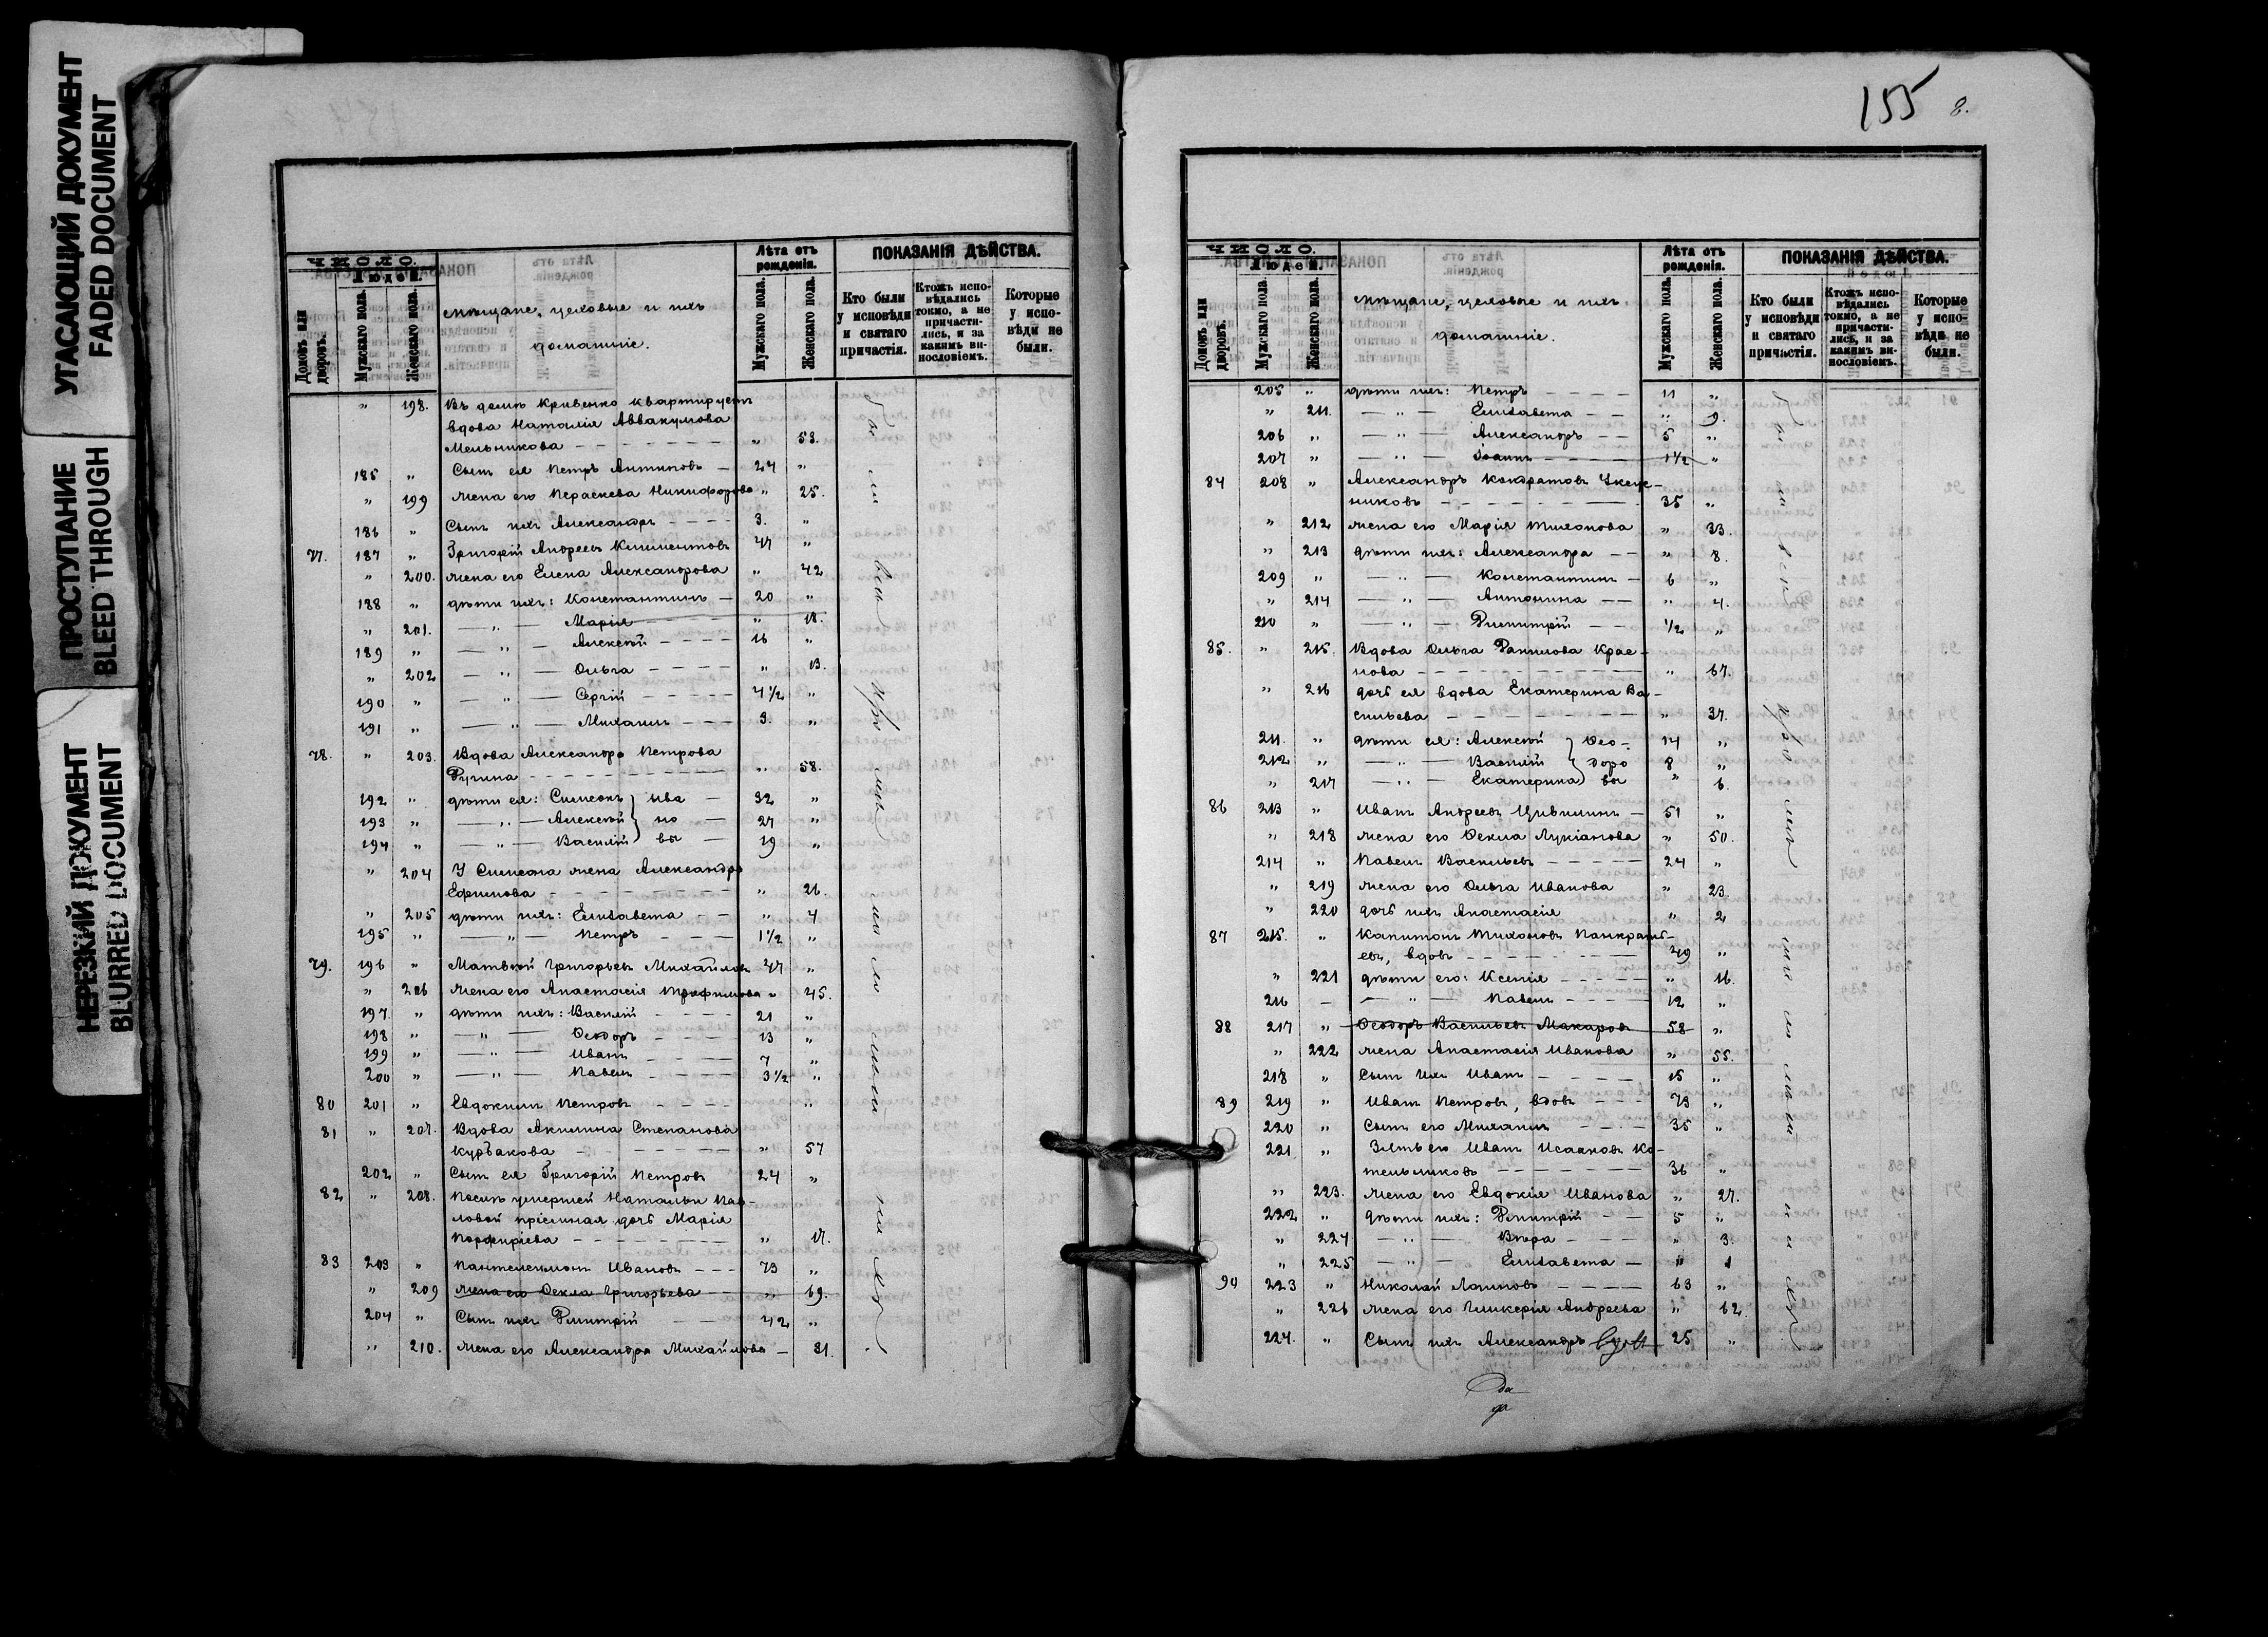 УГАСАЮЩИЙ ДОКУМЕНТ
FADED DOCUMENT
ПРОСТУПАНИЕ
BLEED THROUGH
НЕРЕЗКИЙ ДОКУМЕНТ
BLURRED DOCUMENT
ЧИСЛО.
Людей.
Домовъ или дворовъ.
Мужскаго пола.
Женскаго пола.
Мѣщане, цеховые и ихъ
домашніе.
Лѣта отъ рожденія.
Мужскаго пола.
Женскаго пола.
ПОКАЗАНІЯ ДѢЙСТВА.
Кто были у исповѣди и святаго причастія.
Ктожъ исповѣдались токмо, а не причастились, и за какимъ винословіемъ.
Которые у исповѣди не были.
" 198. Въ домѣ Кривенко квартируетъ
вдова Наталія Аввакумова
Мельникова " 53.
185 " Сынъ ея Петръ Антиповъ 27 "
" 199 Жена его Параскева Никифорова " 25.
186 " Сынъ ихъ Александръ 3. "
77. 187 " Григорій Андреевъ Климентовъ 47 "
" 200. Жена его Елена Александрова " 42
188 " дѣти ихъ: Константинъ 20 "
" 201. — " — Марія " 18.
189 " — " — Алексѣй 16 "
" 202 — " — Ольга " 13.
190 " — " — Сергій 4 1/2 "
191 " — " — Михаилъ 3. "
78. " 203. Вдова Александра Петрова
" 58.
192 " дѣти ея: Симеонъ } Ива 32 "
193 " — " — Алексѣй } но 27 "
194 " — " — Василій } вы 19 "
" 204 У Симеона жена Александра
Ефимова " 26.
" 205 дѣти ихъ: Елизавета " 4
195 " — " — Петръ 1 1/2 "
79. 196 " Матвѣй Григорьевъ Михайловъ 47 "
" 206 Жена его Анастасія Трофимова " 45.
197. " дѣти ихъ: Василій 21 "
198 " — " — Ѳеодоръ 13 "
199 " — " — Иванъ 7 "
200 " — " — Павелъ 3 1/2 "
80 201 " Евдокимъ Петровъ "
81 " 207. Вдова Акилина Степанова
Курбакова " 57
202 " Сынъ ея Григорій Петровъ 24 "
82 " 208. Послѣ умершей Натальи Пав-
ловой пріемная дочь Марія
Порфиріева " 17.
83 203 " Пантелеимонъ Ивановъ 73 "
" 209 Жена его Ѳекла Григорьева " 69.
204 " Сынъ ихъ Димитрій 42 "
" 210. Жена его Александра Михайлова 31.
155
8.
ЧИСЛО.
Людей.
Домовъ или дворовъ.
Мужскаго пола.
Женскаго пола.
Мѣщане, цеховые и ихъ
домашніе.
Лѣта отъ рожденія.
Мужскаго пола.
Женскаго пола.
ПОКАЗАНІЯ ДѢЙСТВА.
Кто были у исповѣди и святаго причастія.
Ктожъ исповѣдались токмо, а не причастились, и за какимъ винословіемъ.
Которые у исповѣди не были.
205 " дѣти ихъ: Петръ 11 "
" 211. — " — Елизавета " 9.
206 " — " — Александръ 5 "
207 " — " — Іоаннъ 1 1/2 "
84 208 " Александръ Кондратовъ
никовъ 35 "
" 212 Жена его Марія Тихонова " 33.
" 213 дѣти ихъ: Александра " 8.
209 " — " — Константинъ 6 "
" 214 — " — Антонина " 4.
210 " — " — Димитрій 1/2 "
85. " 215. Вдова Ольга Данилова Крас-
нова " 67.
" 216 дочь ея вдова Екатерина Ва-
сильева " 37.
211. " дѣти ея: Алексѣй } Ѳео- 14 "
212 " — " — Василій } доро 8 "
" 217 — " — Екатерина } вы " 6.
86 213 " Иванъ Андреевъ Цивилинъ 51 "
" 218 Жена его Ѳекла Лукіанова " 50.
214 " Павелъ Васильевъ 24 "
" 219 Жена его Ольга Иванова " 23.
" 220 дочь ихъ Анастасія " 2
87 215. " Капитонъ Тихоновъ Панкрать-
евъ, вдовъ 49 "
" 221 дѣти его: Ксенія " 16.
216 — — " — Павелъ 12 "
88 217 " Ѳеодоръ Васильевъ Макаровъ 58 "
" 222 Жена Анастасія Иванова " 55.
218 " Сынъ ихъ Иванъ 15 "
89 219 " Иванъ Петровъ, вдовъ 73 "
220 " Сынъ его Михаилъ 35 "
221 " Зять его Иванъ Исааковъ Ко-
тельниковъ 36 "
" 223. Жена его Евдокія Иванова " 27.
222 " дѣти ихъ: Димитрій 5 "
" 224 — " — Вѣра " 3.
" 225 — " — Елизавета " 1
90 223 " Николай Логиновъ 63 "
" 226 Жена его Гликерія Андреева " 62.
224. " Сынъ ихъ Александръ 25 "